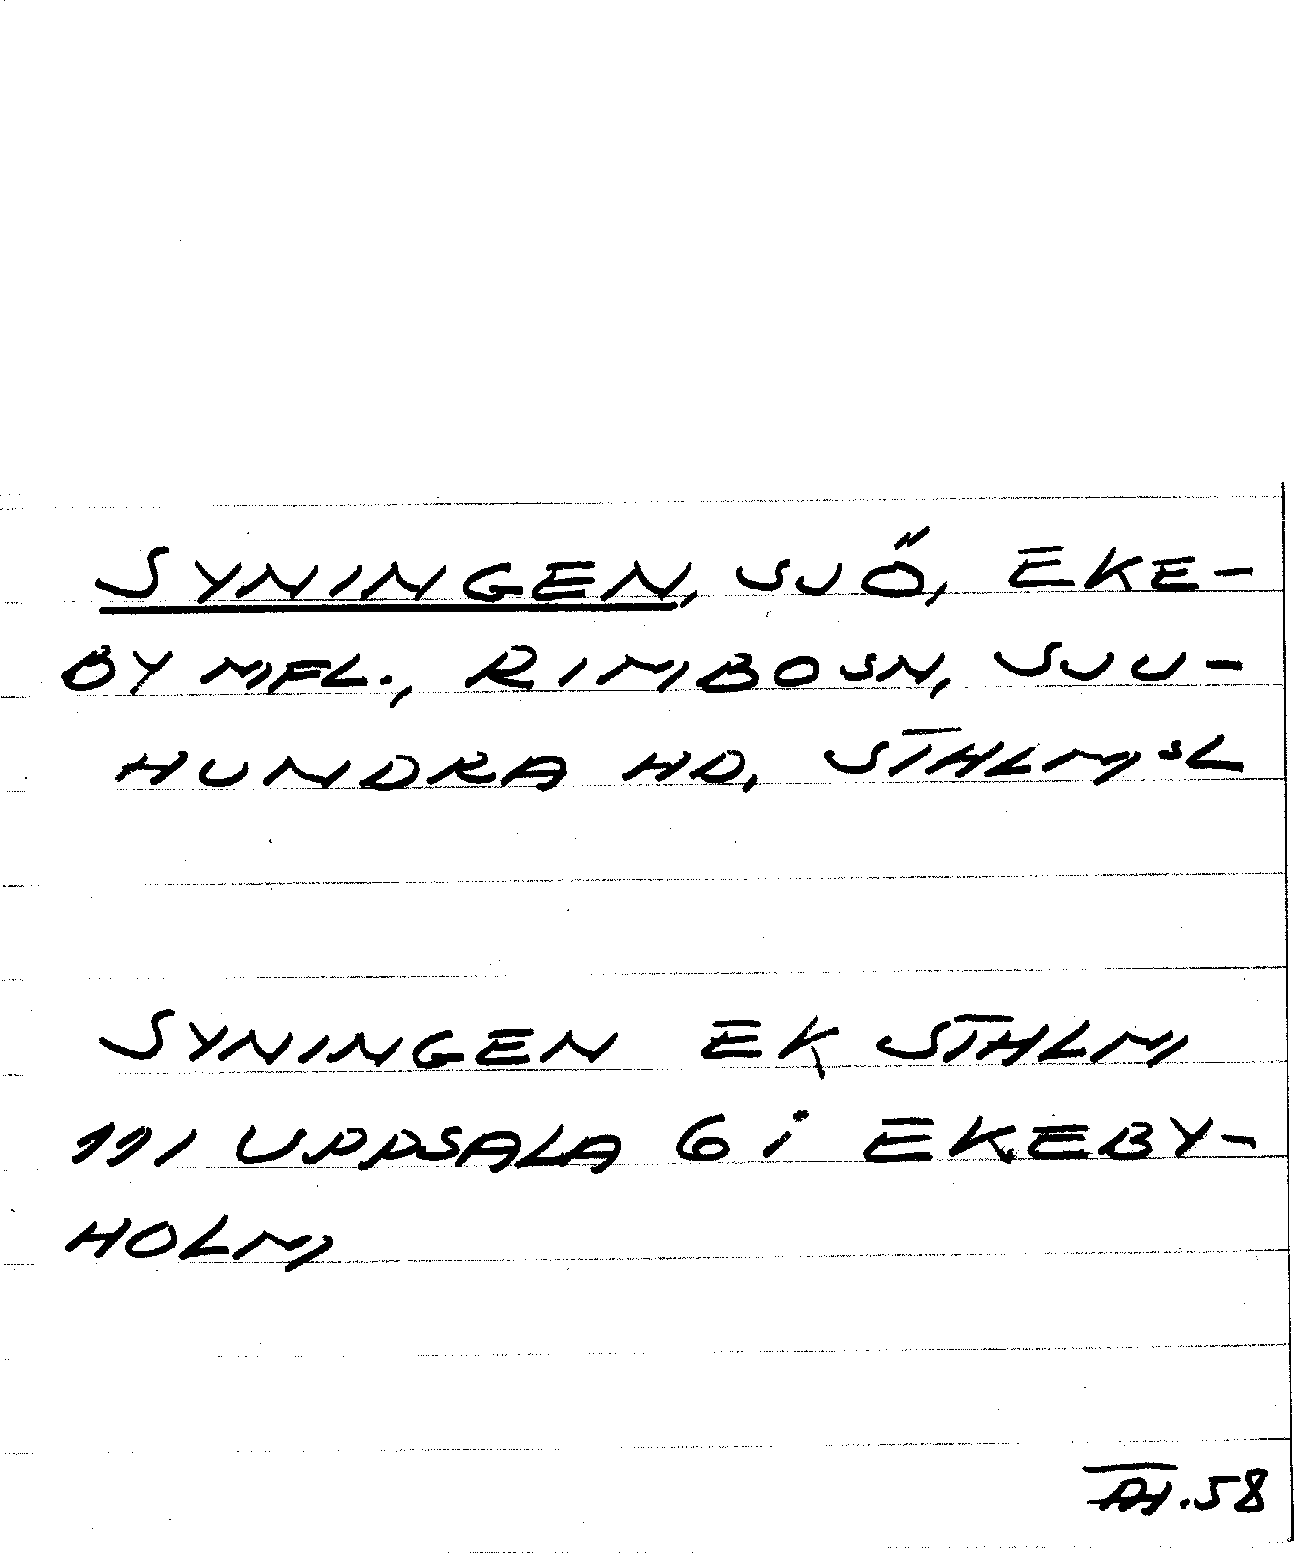 SYNINGEN, SJÖ, EKE-
BY MFL., RIMBOSN, SJU-
HUNDRA HD, STHLMSL
SYNINGEN EK STHLM
111 UPPSALA 6 i EKEBY-
HOLM
.58